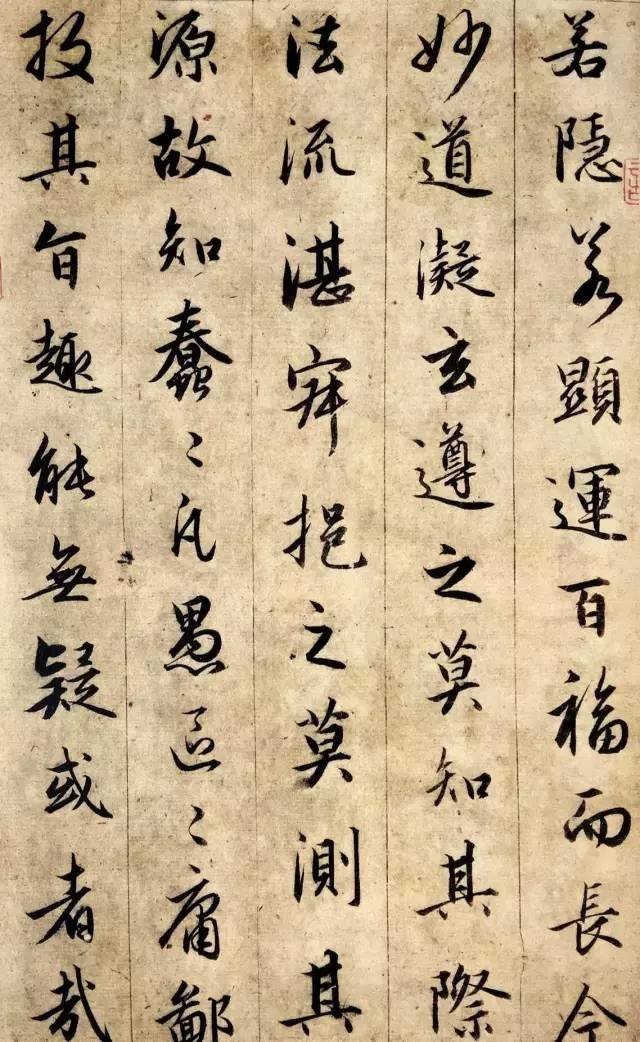 若隱若顯運百福而長今
妙道凝玄遵之莫知其際
法流湛寂挹之莫測其
源故知蠢〻凡愚區〻庸鄙
投其旨趣能無疑或者哉